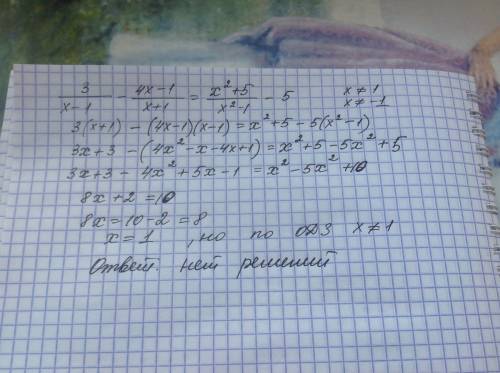 3/(x-1) - (4x-1)/(x+1) = (x²+5)/(x²-1) - 5   x≠1
x≠-1
3(x+1) - (4x-1)(x-1) = x²+5 - 5(x²-1)
3x+3 - (4x²-x-4x+1) = x²+5-5x²+5
3x+3 - 4x²+5x-1 = x²-5x²+10
8x+2 = 10
8x = 10-2 = 8
x = 1 , но по ОДЗ x≠1
Ответ. нет решений